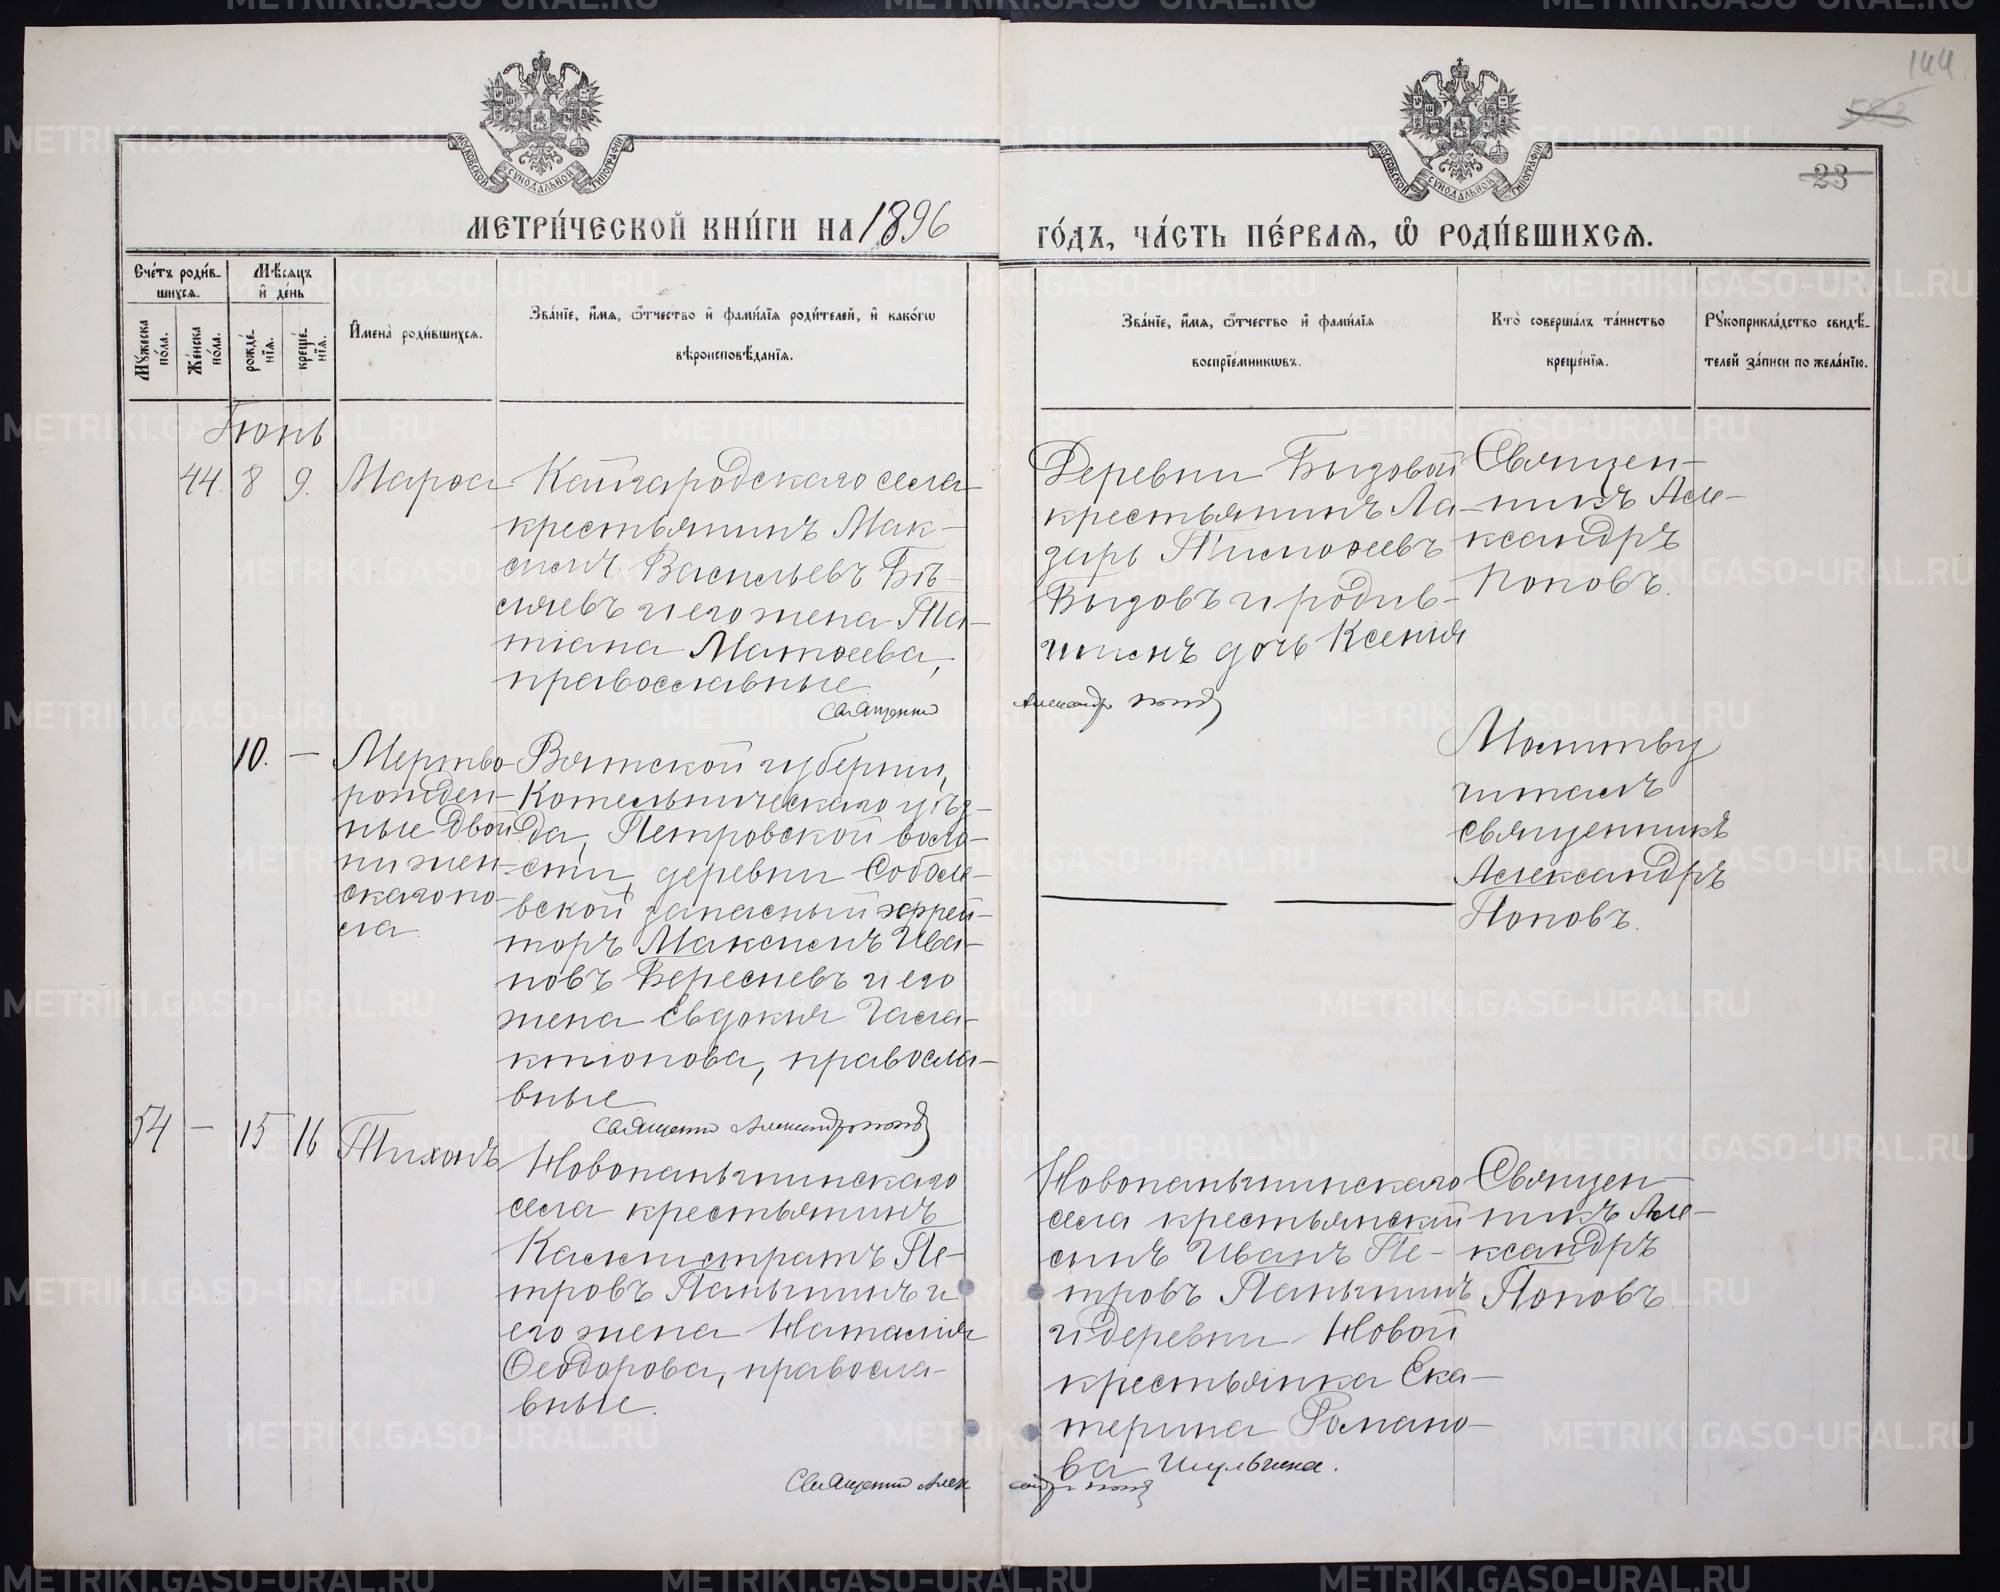 144
23
МОСКОВСКОЙ СѴНОДАЛЬНОЙ ТИПОГРАФІИ
МОСКОВСКОЙ СѴНОДАЛЬНОЙ ТИПОГРАФІИ
МЕТРИ́ЧЕСКОЙ КНИ́ГИ НА 1896
ГО́ДЪ, ЧА́СТЬ ПЕ́РВАѦ, Ѿ РОДИ́ВШИХСѦ.
Сче́тъ роди́в-
шихсѧ.
Мꙋжеска по́ла.
Же́нска по́ла.
Мѣ́сѧцъ
и де́нь
рожде́-
нїѧ.
креще́-
нїѧ.
Имена̀ роди́вшихсѧ.
Зва́нїе, и́мѧ, ѻ́тчество и фами́лїѧ роди́телей, и како́гѡ
вѣроисповѣ́данїѧ.
Зва́нїе, и́мѧ, ѻ́тчество и фами́лїѧ
воспрїе́мникѡвъ.
Кто̀ соверша́лъ та́инство
креще́нїѧ.
Рꙋкоприкла́дство свидѣ́-
телей за́писи по жела́нїю.
Іюнь
44. 8 9. Марѳа
Кайгародскаго села
крестьянинъ Мак-
симъ Васильевъ Бѣ-
ляевъ и его жена Та-
тіана Матѳеева,
православные.
Деревни Быдовой
крестьянинъ Ла-
зарь Тимоѳеевъ
Быдовъ и родив-
шимъ дочь Ксенія
Священ-
никъ Але-
ксандръ
Поповъ.
Священник
Александръ Попов
10. —
Мертво-
рожден-
ные двой
ни жен-
скаго по-
ла.
Вятской губерніи,
Котельническаго уѣз-
да, Петровской воло-
сти, деревни Соболе-
вской запасный ефрей-
торъ Максимъ Ива-
новъ Бересневъ и его
жена Евдокія Гала-
ктіонова, правосла-
вные
Молитву
читалъ
священникъ
Александръ
Поповъ.
Священник Александръ Попов
54 — 15 16 Тихонъ
Новопаньшинскаго
села крестьянинъ
Каллистратъ Пе-
тровъ Паньшинъ и
его жена Наталія
Ѳеодорова, правосла-
вные.
Новопаньшинскаго
села крестьянскій
сынъ Иванъ Пе-
тровъ Паньшинъ
и деревни Новой
крестьянка Ека-
терина Романо-
ва Шульгина.
Священ-
никъ Але-
ксандръ
Поповъ.
Священник Александръ Попов
METRIKI.GASO-URAL.RU